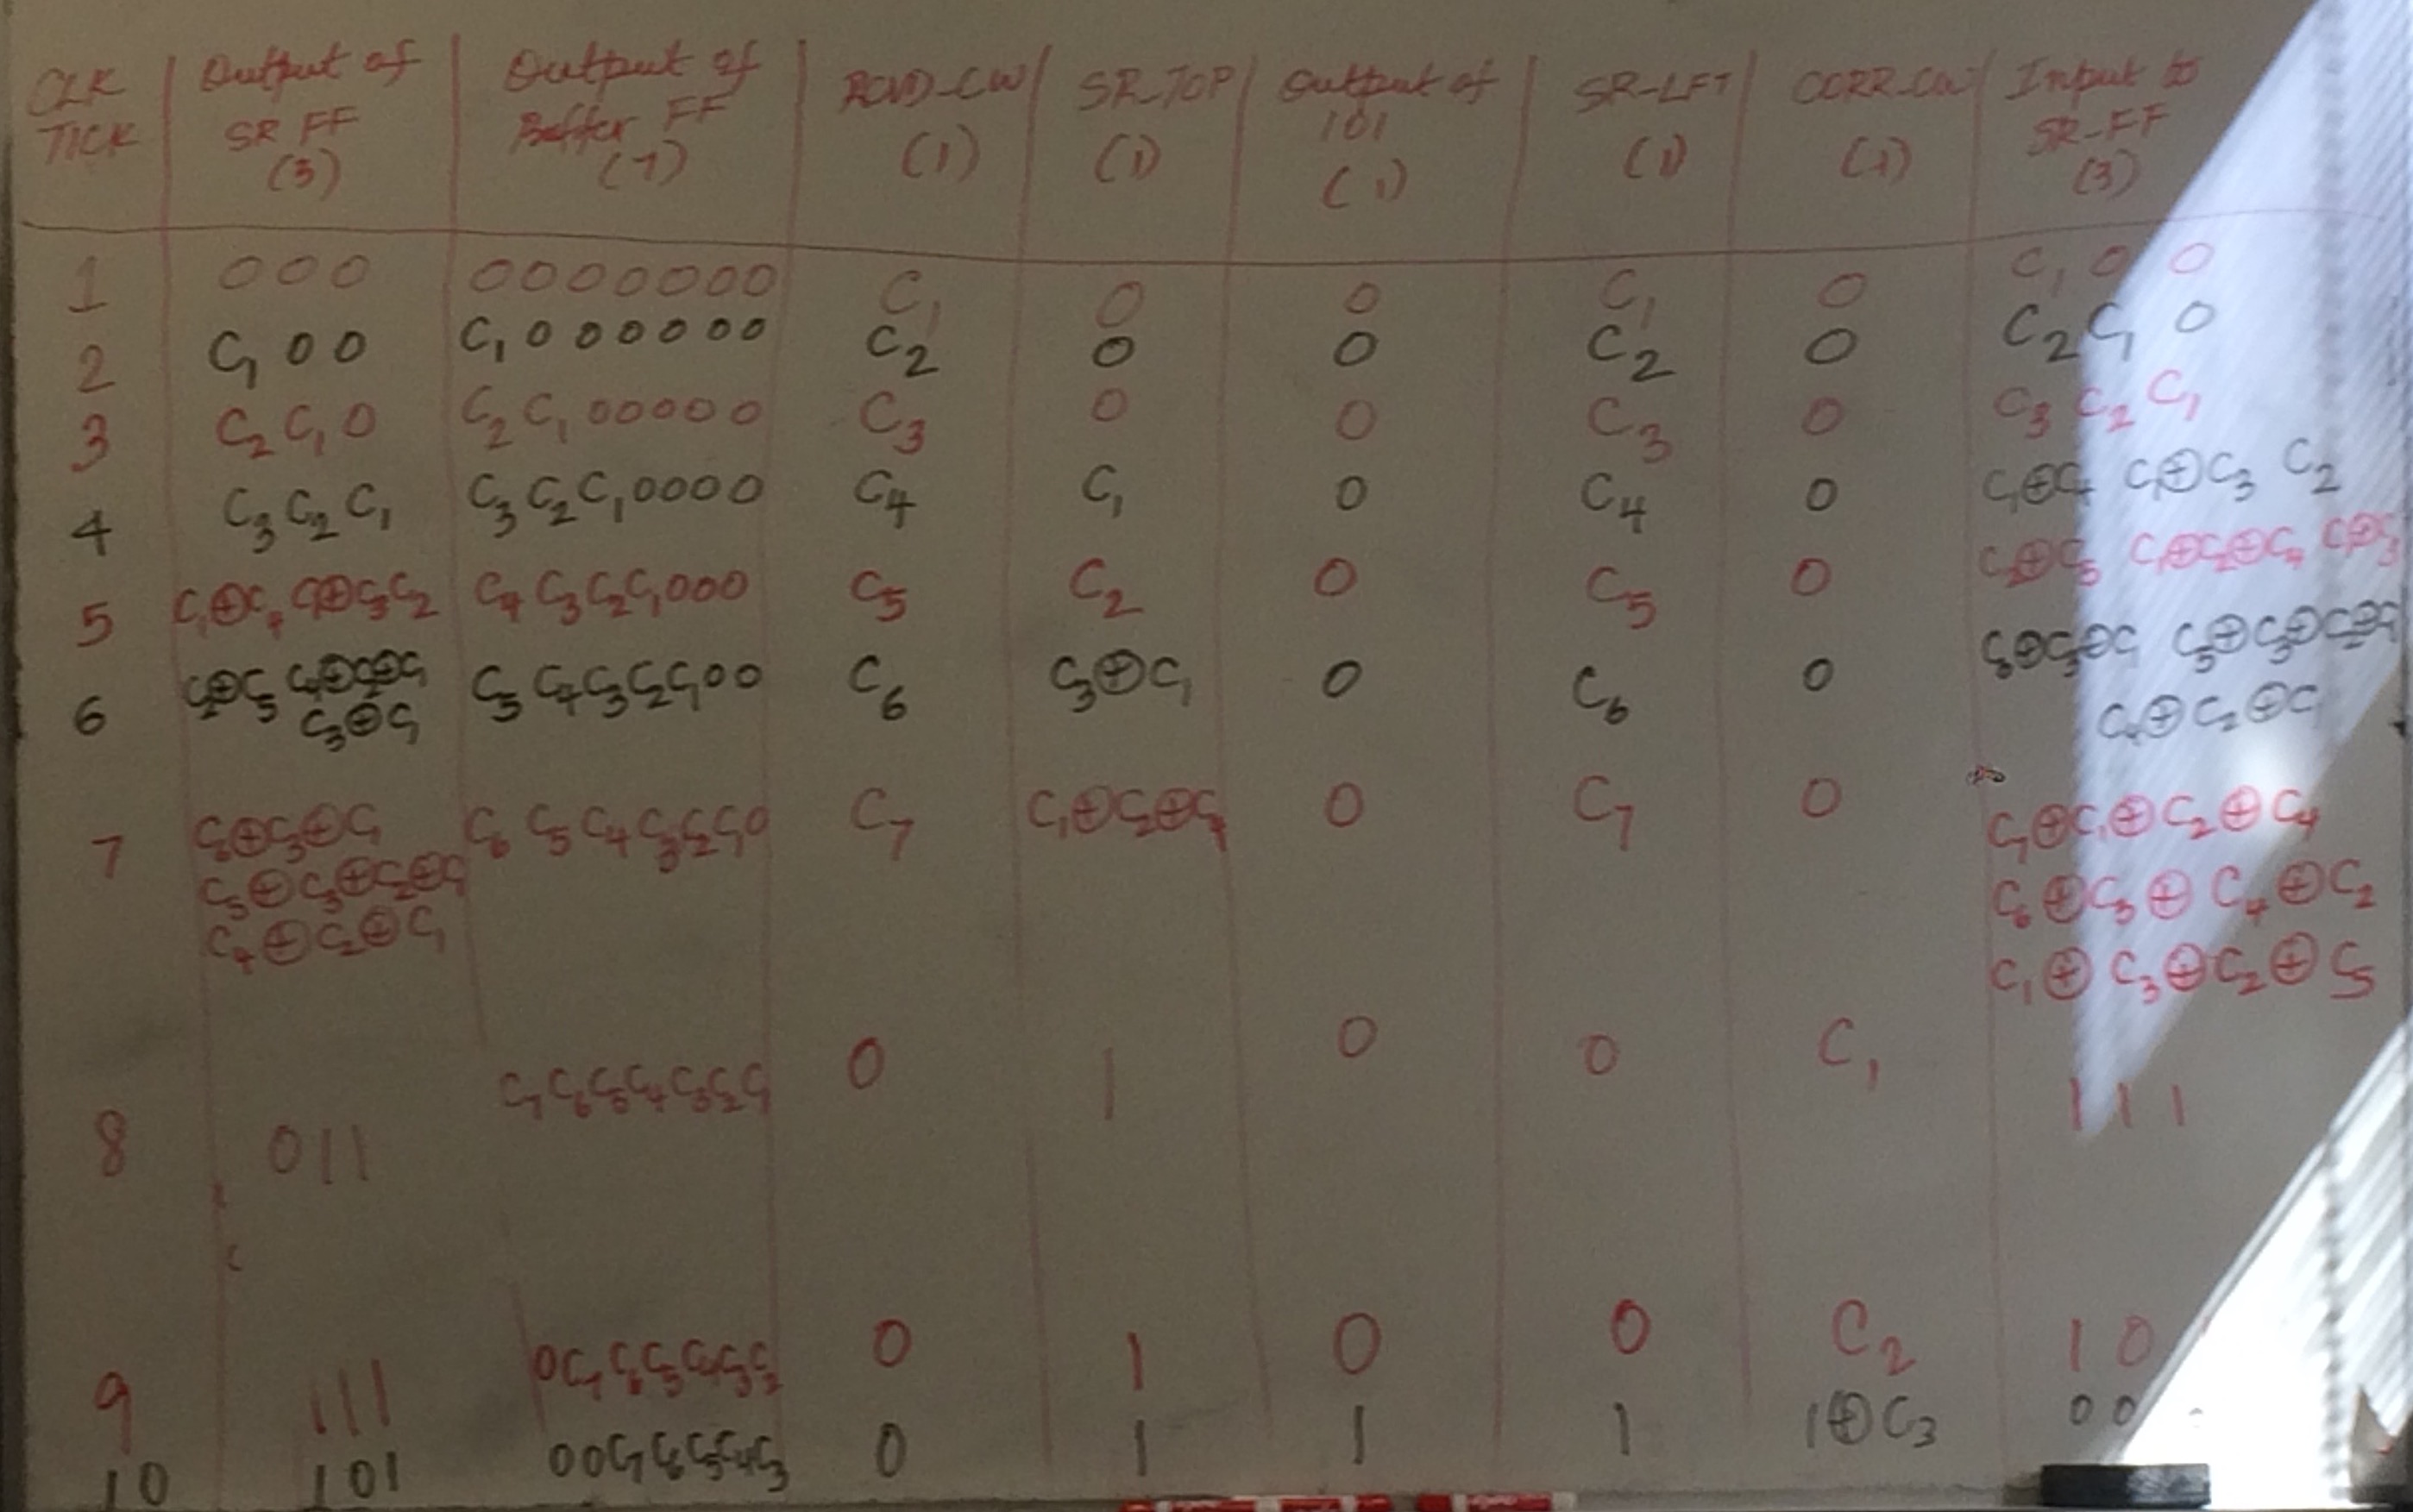 CLK TICK | Output of SR FF (3) | Output of Buffer FF (7) | RCVD-CW (1) | SR-TOP (1) | Output of 101 (1) | SR-LFT (1) | CORR-CW (1) | Input to SR-FF (3)
1 | 0 0 0 | 0 0 0 0 0 0 0 | C1 | 0 | 0 | C1 | 0 | C1 0 0
2 | C1 0 0 | C1 0 0 0 0 0 0 | C2 | 0 | 0 | C2 | 0 | C2 C1 0
3 | C2 C1 0 | C2 C1 0 0 0 0 0 | C3 | 0 | 0 | C3 | 0 | C3 C2 C1
4 | C3 C2 C1 | C3 C2 C1 0 0 0 0 | C4 | C1 | 0 | C4 | 0 | C1⊕C4 C1⊕C3 C2
5 | C1⊕C4 C1⊕C3 C2 | C4 C3 C2 C1 0 0 0 | C5 | C2 | 0 | C5 | 0 | C2⊕C5 C1⊕C2⊕C4 C1⊕C3
6 | C2⊕C5 C4⊕C2⊕C1 | C5 C4 C3 C2 C1 0 0 | C6 | C3⊕C1 | 0 | C6 | 0 | C6⊕C3⊕C1 C5⊕C3⊕C2⊕C1
C3⊕C1 | C4⊕C2⊕C1
7 | C6⊕C3⊕C1 | C6 C5 C4 C3 C2 C1 0 | C7 | C1⊕C2⊕C4 | 0 | C7 | 0 | C7⊕C1⊕C2⊕C4
C5⊕C3⊕C2⊕C1 | C6⊕C3⊕C4⊕C2
C4⊕C2⊕C1 | C1⊕C3⊕C2⊕C5
8 | 0 1 1 | C7 C6 C5 C4 C3 C2 C1 | 0 | 1 | 0 | 0 | C1 | 1 1 1
9 | 1 1 1 | 0 C7 C6 C5 C4 C3 C2 | 0 | 1 | 0 | 0 | C2 | 1 0
10 | 1 0 1 | 0 0 C7 C6 C5 C4 C3 | 0 | 1 | 1 | 1 | 1⊕C3 | 0 0